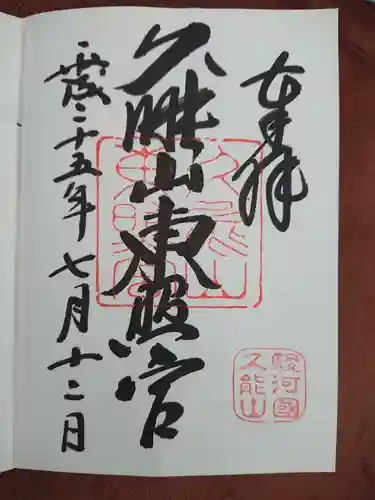 奉拝
久能山東照宮
平成二十五年七月十二日
久能山
東照宮
駿河國
久能山